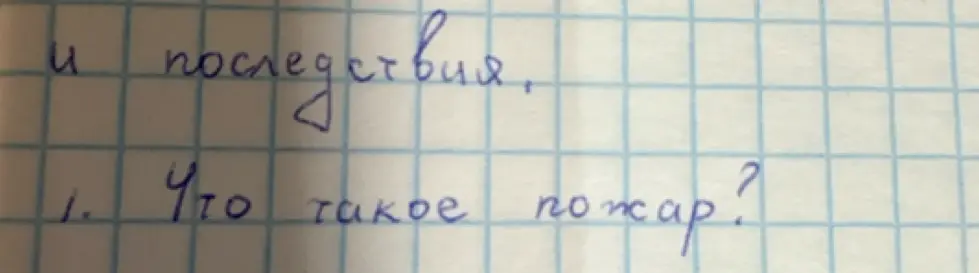 и последствия.
1. Что такое пожар?